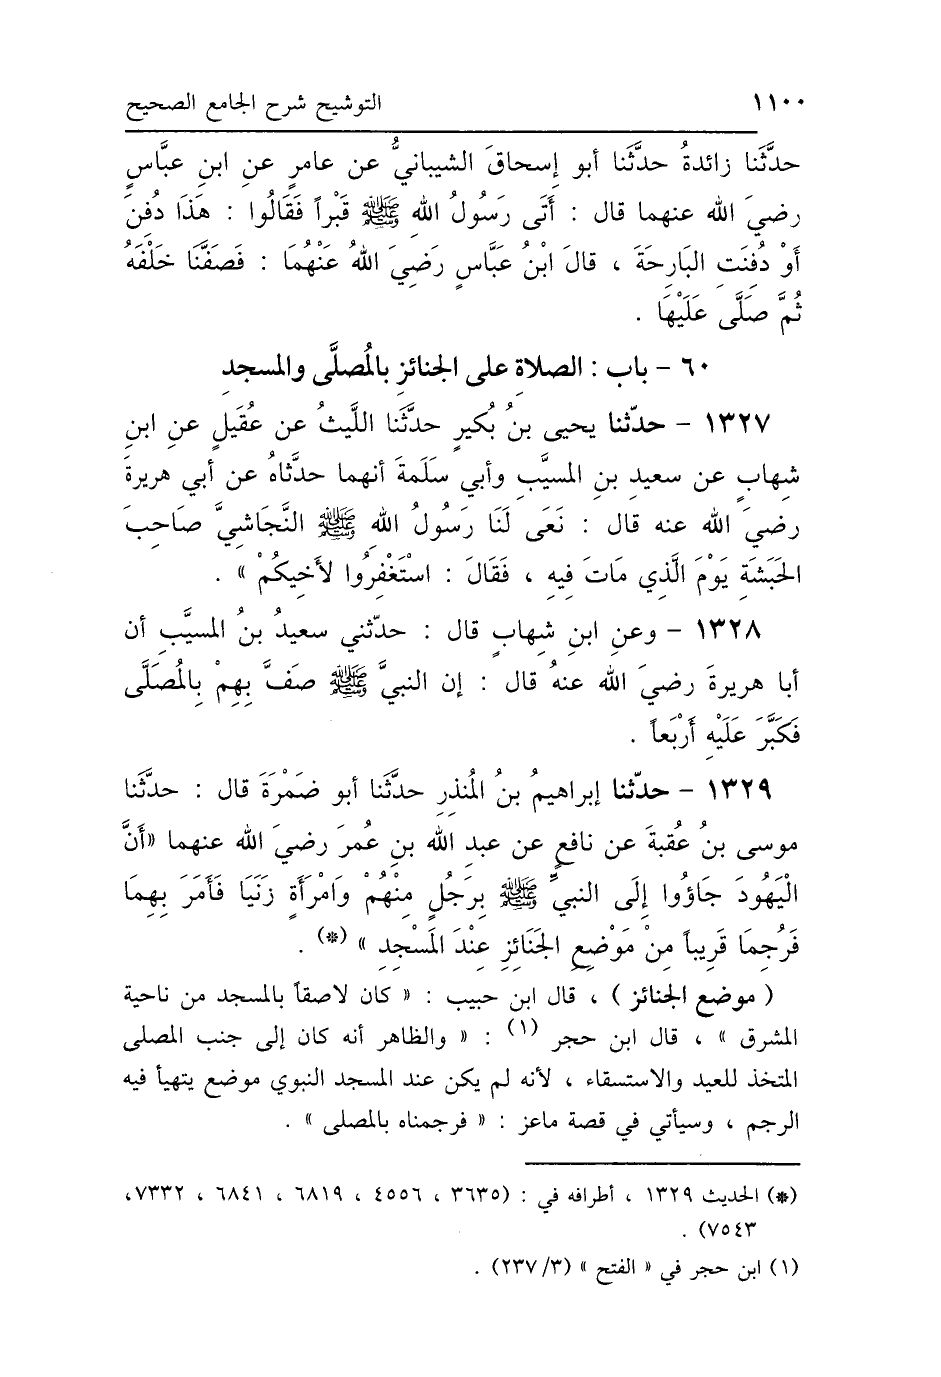 ١١٠٠ التوشيح شرح الجامع الصحيح
حدَّثَنا زائدةُ حدَّثَنا أبو إسحاقَ الشيبانيُّ عن عامرٍ عنِ ابنِ عبَّاسٍ
رضيَ الله عنهما قال : أَتَى رَسُولُ اللهِ ﷺ قَبْراً فَقَالُوا : هَذَا دُفِنَ
أَوْ دُفِنَتِ البَارِحَةَ ، قالَ ابْنُ عَبَّاسٍ رَضِيَ اللهُ عَنْهُمَا : فَصَفَّنَا خَلْفَهُ
ثُمَّ صَلَّى عَلَيْهَا .
٦٠ - باب : الصلاةِ على الجنائزِ بالمُصلَّى والمسجدِ
١٣٢٧ - حدّثنا يحيى بنُ بُكيرٍ حدَّثَنا الليثُ عن عقَيلٍ عنِ ابنِ
شهابٍ عن سعيدِ بنِ المسيَّبِ وأبي سلَمةَ أنهما حدَّثاهُ عن أبي هريرةَ
رضيَ الله عنه قال : نَعَى لَنَا رَسُولُ اللهِ ﷺ النَّجَاشِيَّ صَاحِبَ
الحَبَشَةِ يَوْمَ الَّذِي مَاتَ فِيهِ ، فَقَالَ : اسْتَغْفِرُوا لأَخِيكُمْ » .
١٣٢٨ - وعنِ ابنِ شهابٍ قال : حدّثني سعيدُ بنُ المسيَّبِ أن
أبا هريرةَ رضيَ الله عنهُ قال : إن النبيَّ ﷺ صَفَّ بِهِمْ بِالمُصَلَّى
فَكَبَّرَ عَلَيْهِ أَرْبَعاً .
١٣٢٩ - حدّثنا إبراهيمُ بنُ المُنذِرِ حدَّثَنا أبو ضَمْرَةَ قال : حدَّثَنا
موسى بنُ عُقبةَ عن نافعٍ عن عبدِ الله بنِ عُمرَ رضيَ الله عنهما «أَنَّ
الْيَهُودَ جَاؤُوا إِلَى النبيِّ ﷺ بِرَجُلٍ مِنْهُمْ وَامْرَأَةٍ زَنَيَا فَأَمَرَ بِهِمَا
فَرُجِمَا قَرِيباً مِنْ مَوْضِعِ الجَنَائِزِ عِنْدَ المَسْجِدِ » (*) .
( موضع الجنائز ) ، قال ابن حبيب : « كان لاصقاً بالمسجد من ناحية
المشرق » ، قال ابن حجر (١) : « والظاهر أنه كان إلى جنب المصلى
المتخذ للعيد والاستسقاء ، لأنه لم يكن عند المسجد النبوي موضع يتهيأ فيه
الرجم ، وسيأتي في قصة ماعز : « فرجمناه بالمصلى » .
(*) الحديث ١٣٢٩ ، أطرافه في : (٣٦٣٥ ، ٤٥٥٦ ، ٦٨١٩ ، ٦٨٤١ ، ٧٣٣٢،
٧٥٤٣) .
(١) ابن حجر في « الفتح » (٢٣٧/٣) .